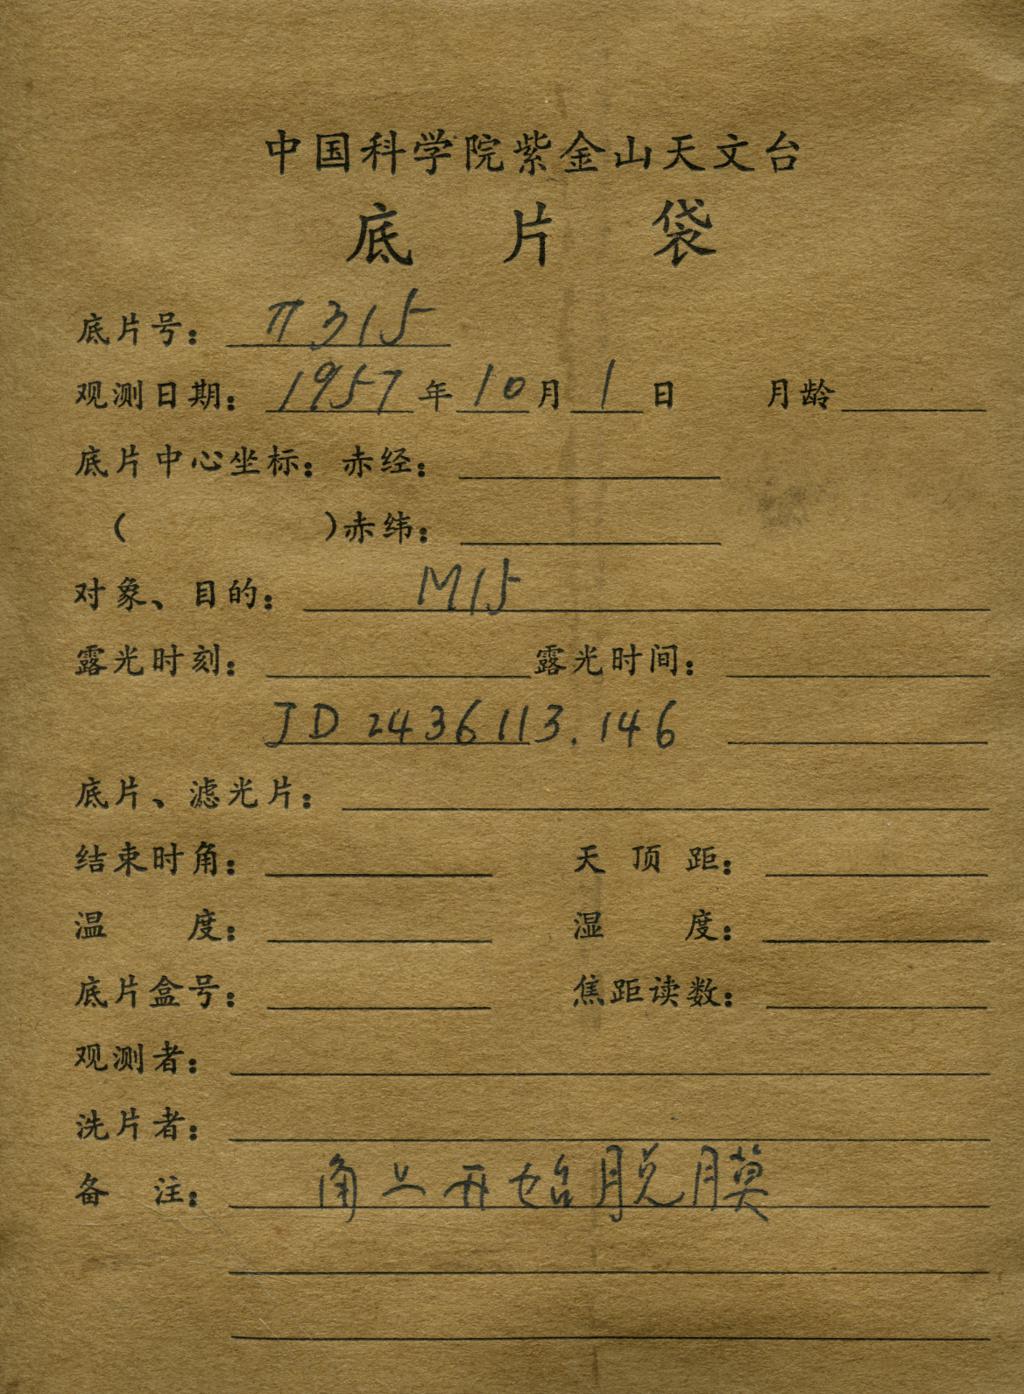 中国科学院紫金山天文台
底片袋
底片号： π315
观测日期： 1957年10月1日 月龄
底片中心坐标：赤经：
（ ）赤纬：
对象、目的： M15
露光时刻： 露光时间：
JD 2436113.146
底片、滤光片：
结束时角： 天顶距：
温度： 湿度：
底片盒号： 焦距读数：
观测者：
洗片者：
备注： 角上开始脱膜